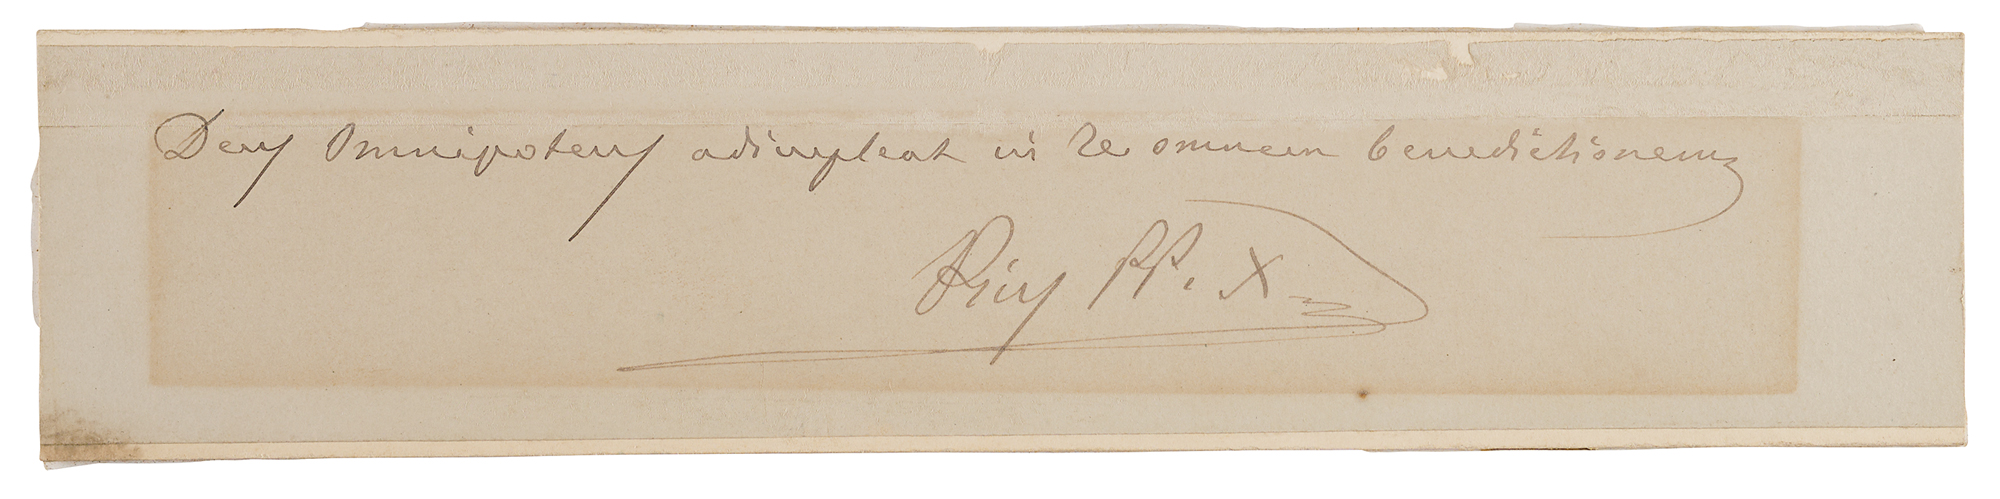 Deus Omnipotens adimpleat in te omnem benedictionem
Pius PP. X